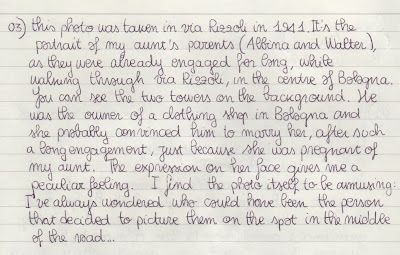 03) this photo was taken in via Rizzoli in 1941. It's the
portrait of my aunt's parents (Albina and Walter),
as they were already engaged for long, while
walking through via Rizzoli, in the centre of Bologna.
You can see the two towers on the background. He
was the owner of a clothing shop in Bologna and
she probably convinced him to marry her, after such
a long engagement, just because she was pregnant of
my aunt. The expression on her face gives me a
peculiar feeling. I find the photo itself to be amusing:
I've always wondered who could have been the person
that decided to picture them on the spot in the middle
of the road...